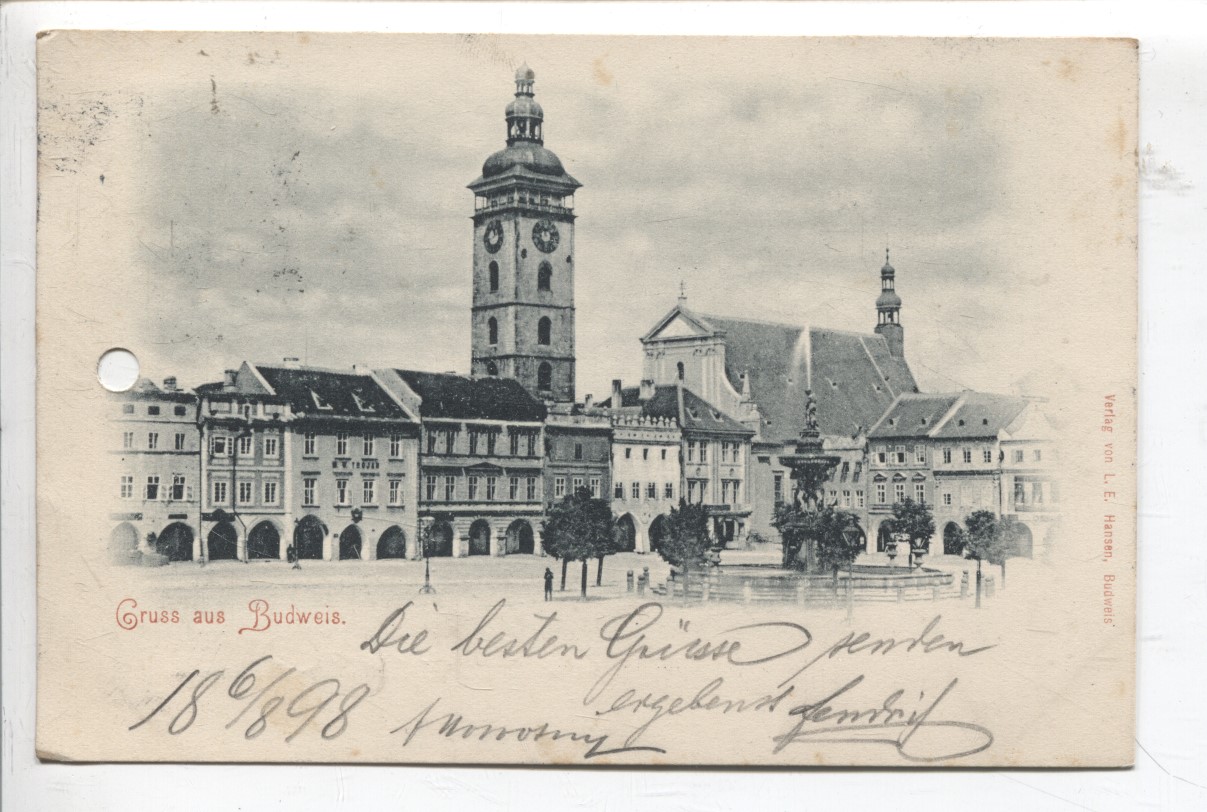 M. H. TROJAN
Gruss aus Budweis.
Die besten Grüsse senden
ergebenst
18 6/8 98
Verlag von L. E. Hansen, Budweis